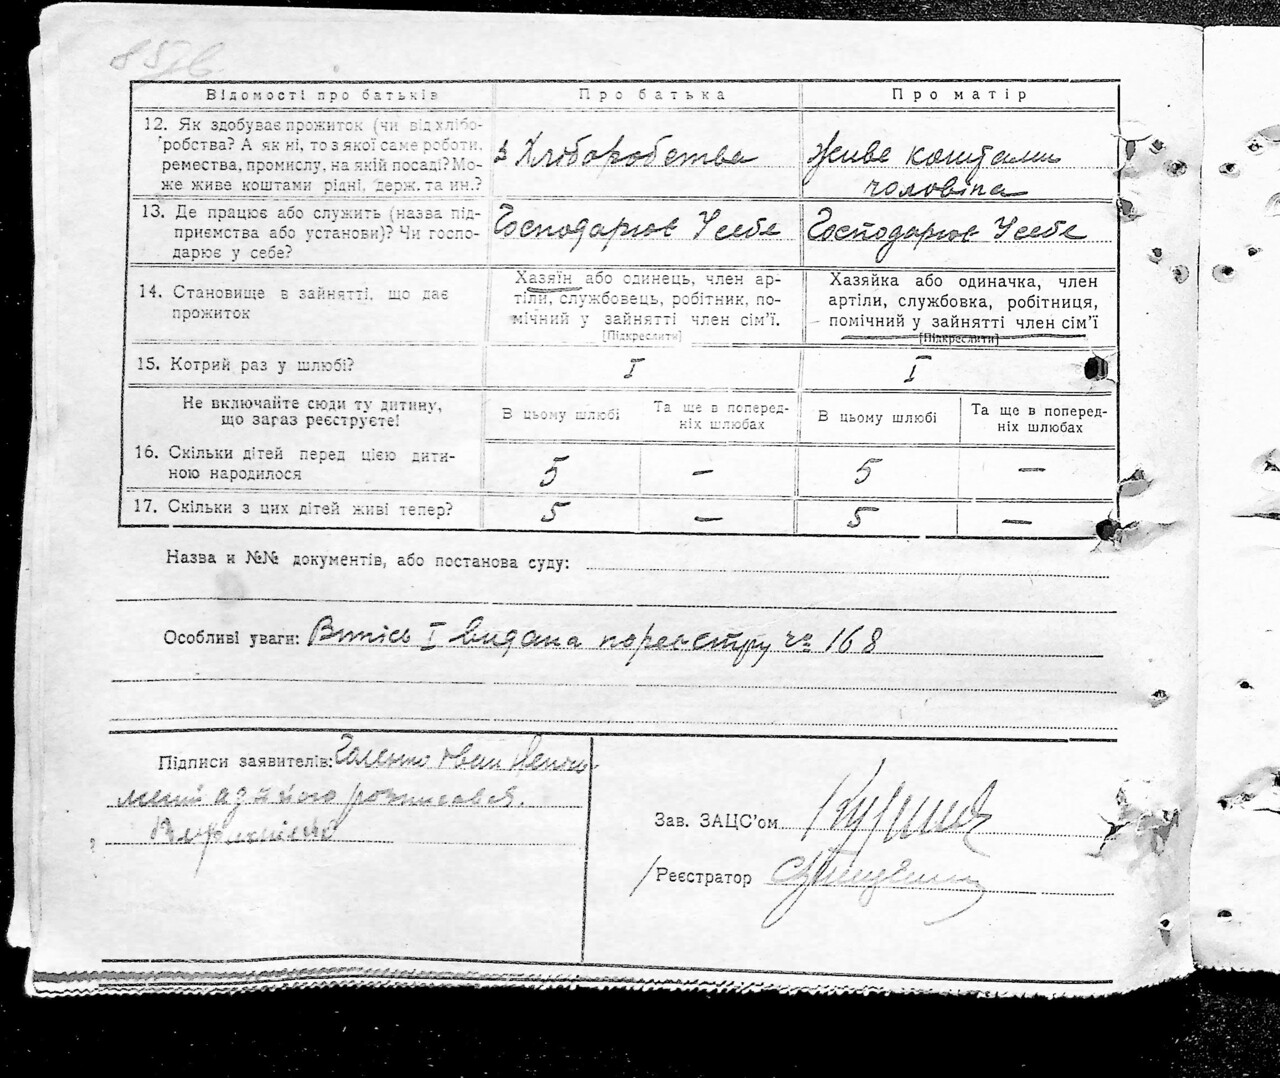 85зв
Відомості про батьків
Про батька
Про матір
12. Як здобуває прожиток (чи від хлібо-
робства? А як ні, то з якої саме роботи,
ремества, промислу, на якій посаді? Мо-
же живе коштами рідні, держ. та ин.?
з Хліборобства
живе коштами
чоловіка
13. Де працює або служить (назва під-
приємства або установи)? Чи госпо-
дарює у себе?
Господарює У себе
Господарює У себе
14. Становище в зайнятті, що дає
прожиток
Хазяїн або одинець, член ар-
тіли, службовець, робітник, по-
мічний у зайнятті член сім'ї.
[Підкреслити]
Хазяйка або одиначка, член
артіли, службовка, робітниця,
помічний у зайнятті член сім'ї
[Підкреслити]
15. Котрий раз у шлюбі?
I
I
Не включайте сюди ту дитину,
що зараз реєструєте!
В цьому шлюбі
Та ще в поперед-
ніх шлюбах
В цьому шлюбі
Та ще в поперед-
ніх шлюбах
16. Скільки дітей перед цією дити-
ною народилося
5
—
5
—
17. Скільки з цих дітей живі тепер?
5
—
5
—
Назва и №№ документів, або постанова суду:
Особливі уваги: Випись I видана по реєстру № 168
Підписи заявителів: Іван
розписався.
Зав. ЗАЦС'ом
Реєстратор